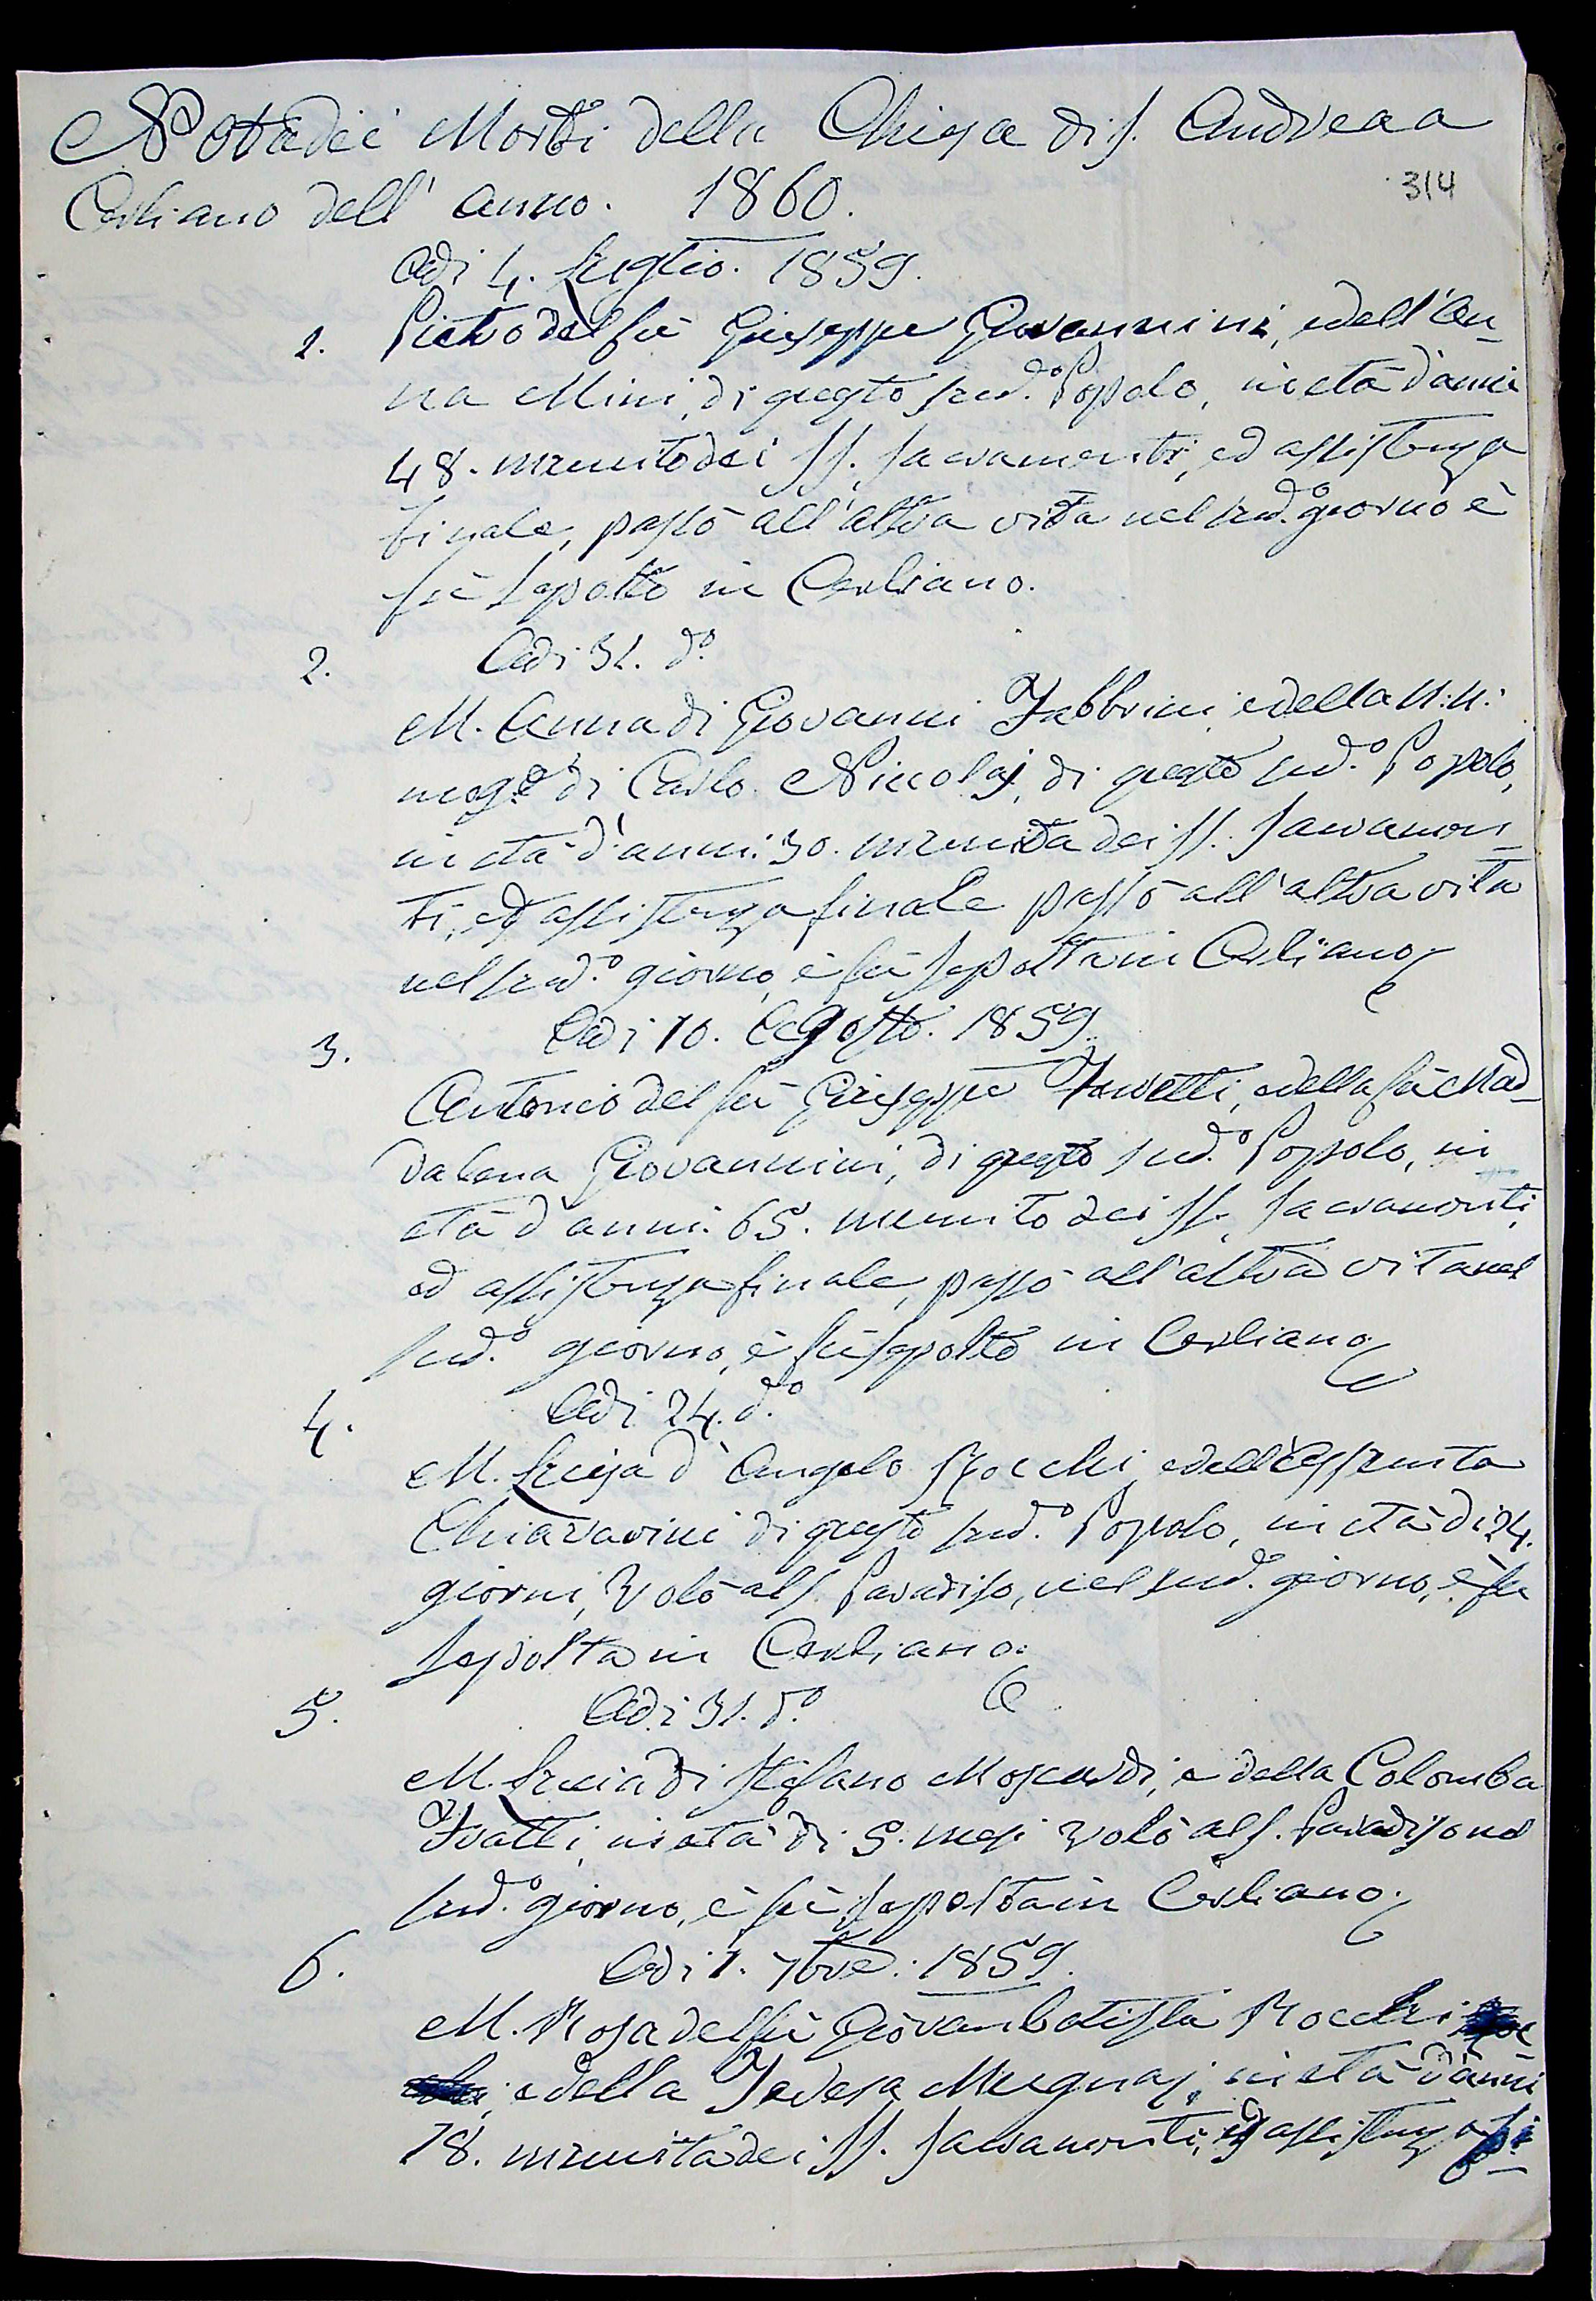 Nota dei Morti della Chiesa di S. Andrea a
314
Cerliano dell' anno. 1860.
Adi 4. Luglio. 1859.
1. Pietro del fù Giuseppe Giovannini, e dell'An-
na Mini, di questo sud.o Popolo, in età d'anni
48. munito dei SS. Sacramenti, ed assistenza
finale, passò all'altra vita nel sud.o giorno è
fù sepolto in Cerliano.
2. Adi 31. d.o
M. Anna di Giovanni Fabbrini e della N: N:
mog.e di Carlo Niccolaj, di questo sud.o Popolo,
in età d'anni: 30. munita dei SS. Sacramen-
ti, ed assistenza finale passò all'altra vita
nel sud.o giorno, è fù sepolta in Cerliano
3. Adi 10. Agosto. 1859.
Antonio del fù Giuseppe Ferretti, e della fù Mad-
dalena Giovannini, di questo sud.o Popolo, in
età d'anni. 65. munito dei SS. Sacramenti,
ed assistenza finale, passò all'altra vita nel
sud.o giorno, è fù sepolto in Cerliano
4. Adi 24. d.o
M. Luisa d'Angelo Rocchi e dell'Assunta
Chiaravini di questo sud.o Popolo, in età di 24.
giorni, volò al S. Paradiso, nel sud.o giorno, è fu
sepolta in Cerliano.
5. Adi 31. d.o
M. Lucia di Stefano Moscardi, e della Colomba
Fratti, in età di 5. mesi volò al S. Paradiso nel
sud.o giorno, è fù sepolta in Cerliano.
6. Adi 1. 7bre. 1859.
M. Rosa del fù Giovanbatista Rocchi
e della Teresa Mugnaj, in età d'anni
78. munita dei SS. Sacramenti, ed assistenza fi-